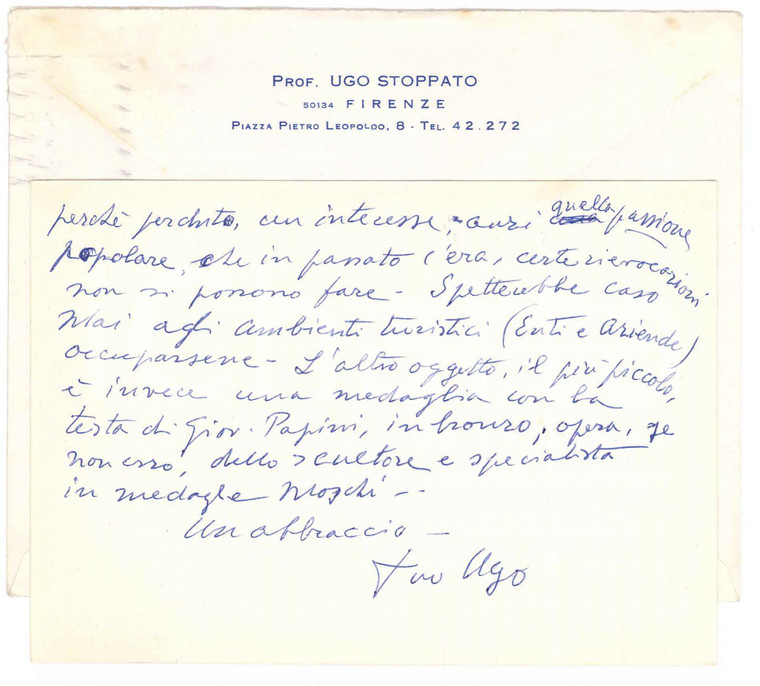 PROF. UGO STOPPATO
50134 FIRENZE
PIAZZA PIETRO LEOPOLDO, 8 - TEL. 42.272
perchè perduto, un interesse, anzi quella passione
popolare, che in passato c'era, certe rievocazioni
non si possono fare - Spetterebbe caso
mai agli ambienti turistici (Enti e Aziende)
occuparsene - L'altro oggetto, il più piccolo,
è invece una medaglia con la
testa di Giov. Papini, in bronzo, opera, se
non erro, dello scultore e specialista
in medaglie Moschi --
Un abbraccio -
tuo Ugo